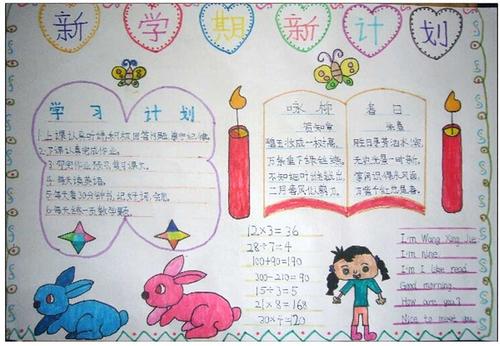 新学期新计划
学习计划
1.上课认真听讲,积极回答问题
2.下课认真完成作业。
3.写完作业预习复习课文。
4.每天读英语。
5.每天看30分钟书,记好词,
6.每天练一页数学题。
咏柳
贺知章
碧玉妆成一树高,
万条垂下绿丝绦。
不知细叶谁裁出,
二月春风似剪刀。
春日
朱熹
胜日寻芳泗水滨,
无边光景一时新。
等闲识得东风面,
万紫千红总是春。
12×3=36
28÷7=4
100+90=190
300-210=90
15÷3=5
21×8=168
30×4=120
I'm Wang Xing Jie
I'm nine.
I'm I like read.
Good morning.
How are you?
Nice to meet you